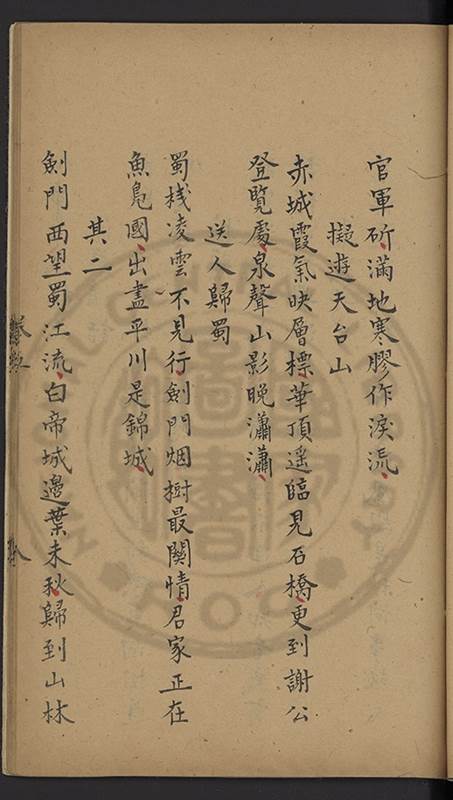 官軍斫滿地寒膠作淚流
擬遊天台山
赤城霞氣映層標華頂遥臨見石橋更到謝公
登覽處泉聲山影晚瀟瀟
送人歸蜀
蜀栈凌雲不見行劍門烟樹最關情君家正在
魚鳧國出盡平川是錦城
其二
劍門西望蜀江流白帝城邊葉未秋歸到山林